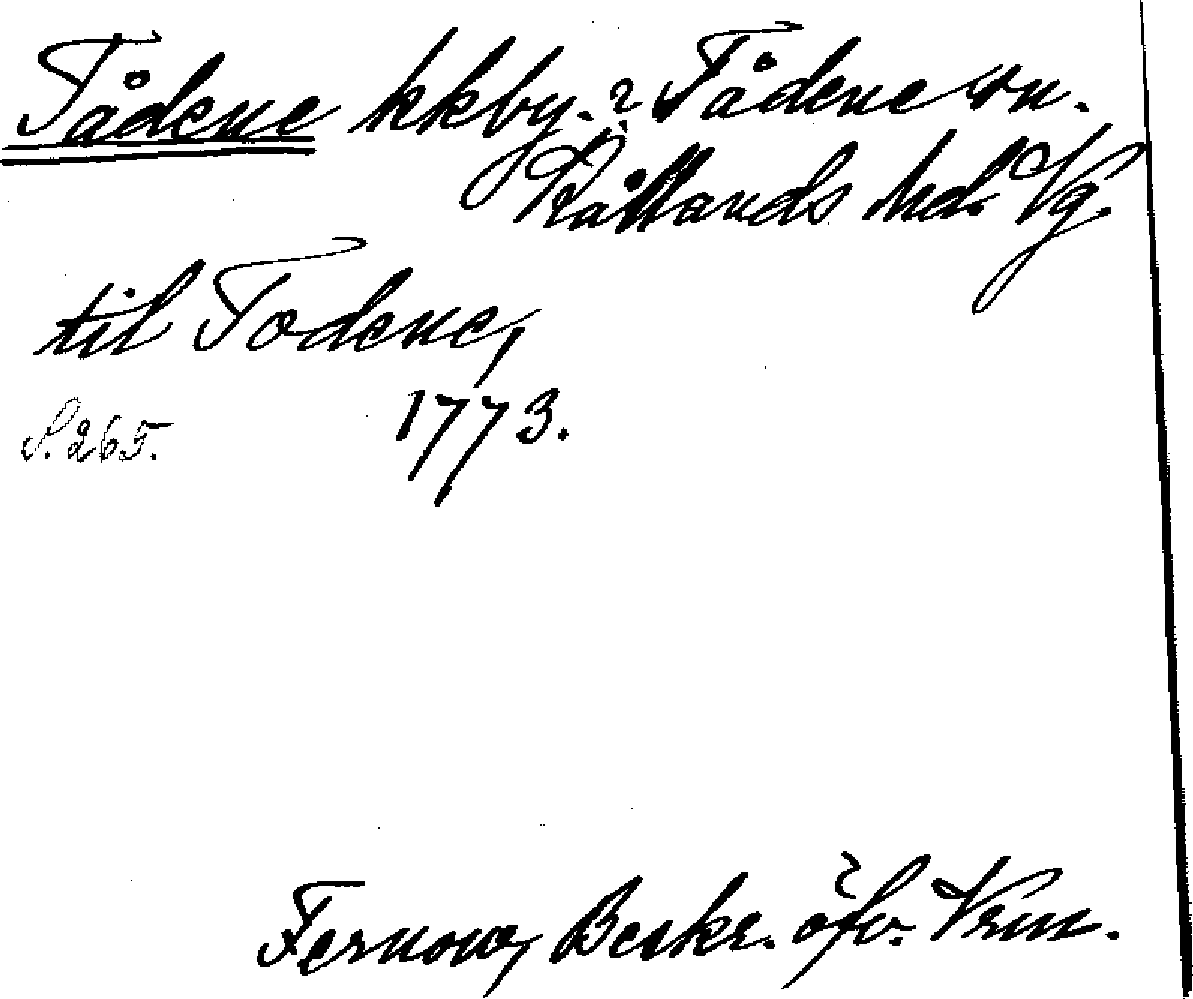 Tådene kkby.? Tådene sn.
Kållands hd. Vg.
til Todene,
1773.
S. 265.
Fernow, Beskr. öfv. Vrm.